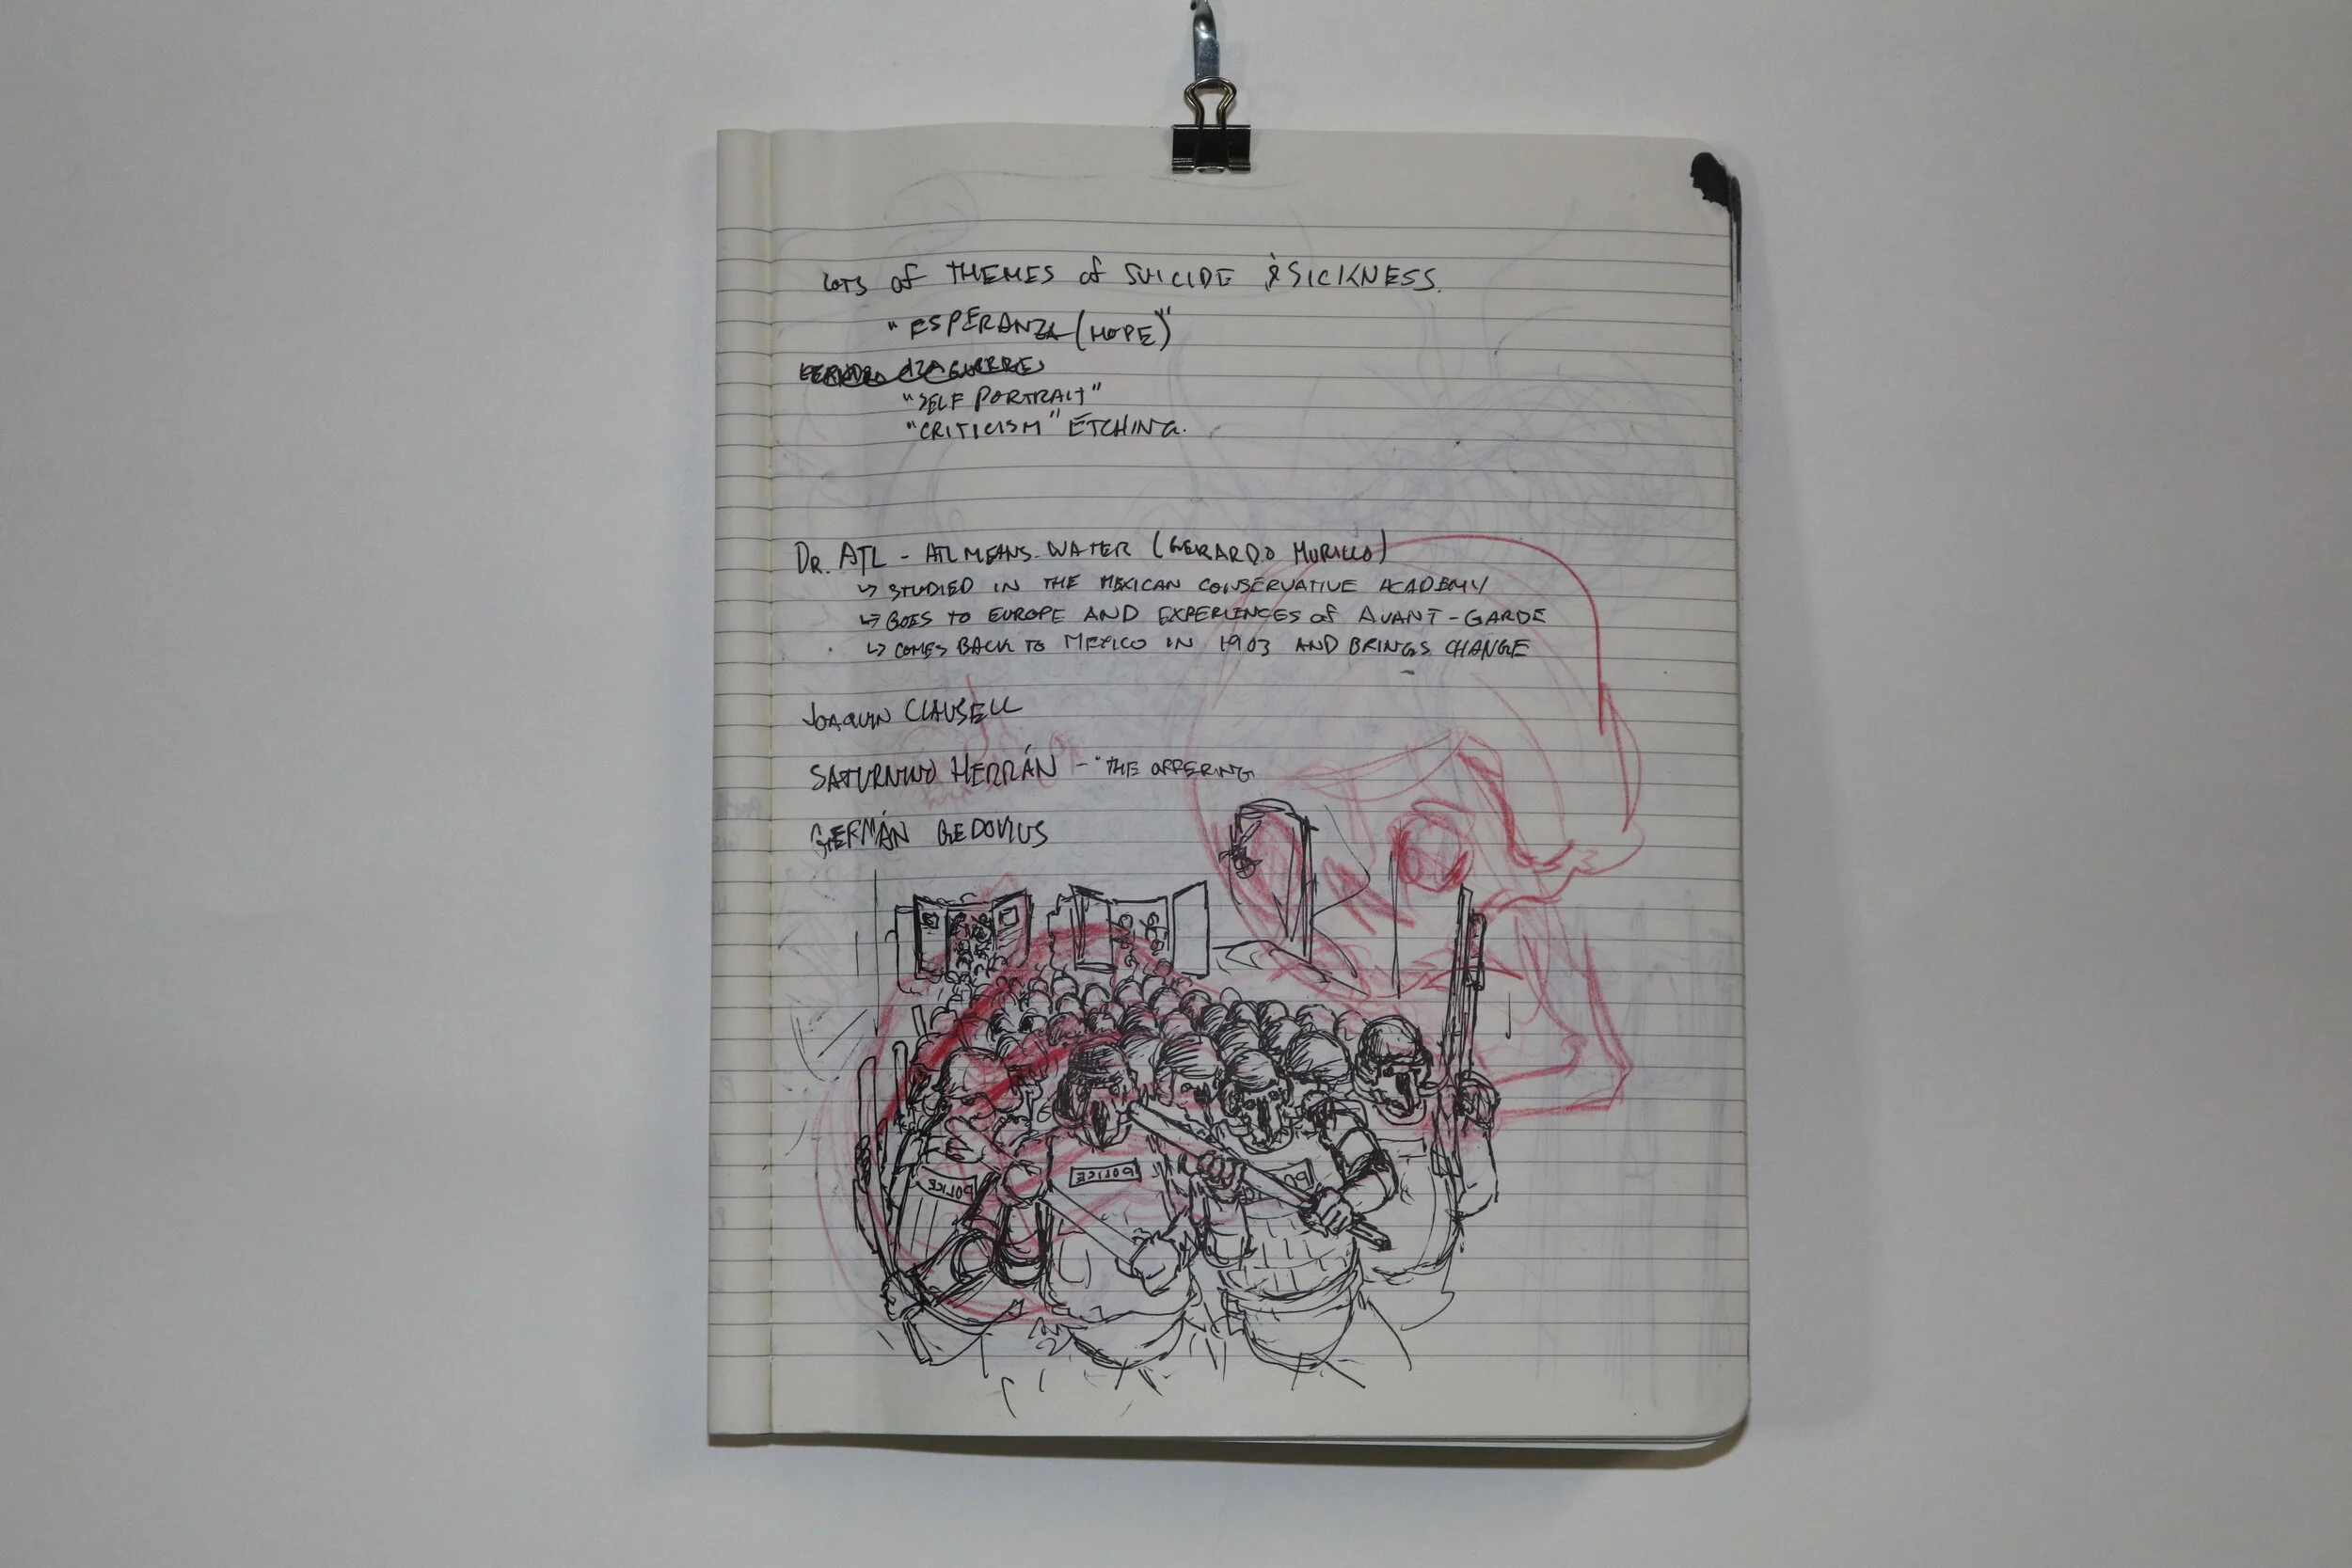 LOTS of THEMES of SUICIDE & SICKNESS.
"ESPERANZA (HOPE)"
"SELF PORTRAIT"
"CRITICISM" ETCHING.
DR. ATL - ATL MEANS WATER (GERARDO MURILLO)
↳ STUDIED IN THE MEXICAN CONSERVATIVE ACADEMY
↳ GOES TO EUROPE AND EXPERIENCES of AVANT-GARDE
↳ COMES BACK TO MEXICO IN 1903 AND BRINGS CHANGE
JOAQUIN CLAUSELL
SATURNINO HERRÁN - "THE OFFERING
GERMÁN GEDOVIUS
POLICE
POLICE
PO